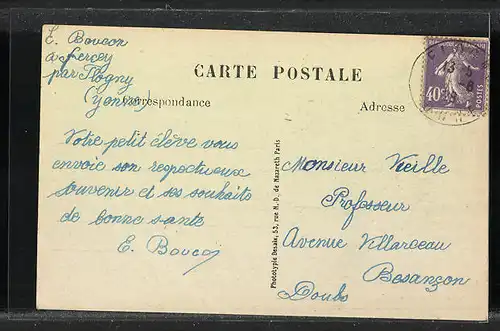 E. Boucon
à Jercey
par Flogny
(Yonne)
CARTE POSTALE
Correspondance
Adresse
Votre petit élève vous
envoie son respectueux
souvenir et ses souhaits
de bonne santé
E. Boucon
Phototypie Desaix, 53, rue N.-D. de Nazareth Paris
Monsieur Vieille
Professeur
Avenue Villarceau
Besançon
Doubs
40c
POSTES